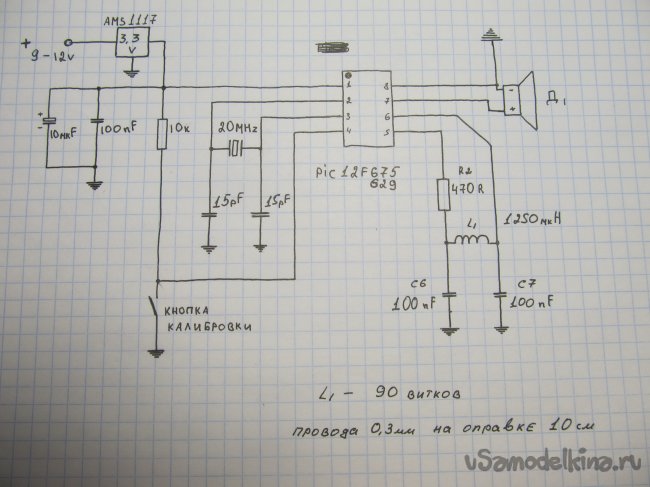 AMS1117
+
9-12v
3,3
V
+
-
10мкF
100nF
10к
20MHz
15pF
15pF
1
2
3
4
8
7
6
5
pic 12F675
629
-
+
Д1
R2
470R
L1
1250мкН
C6
100nF
C7
100nF
КНОПКА
КАЛИБРОВКИ
L1 - 90 витков
провода 0,3мм на оправке 10см
vSamodelkina.ru